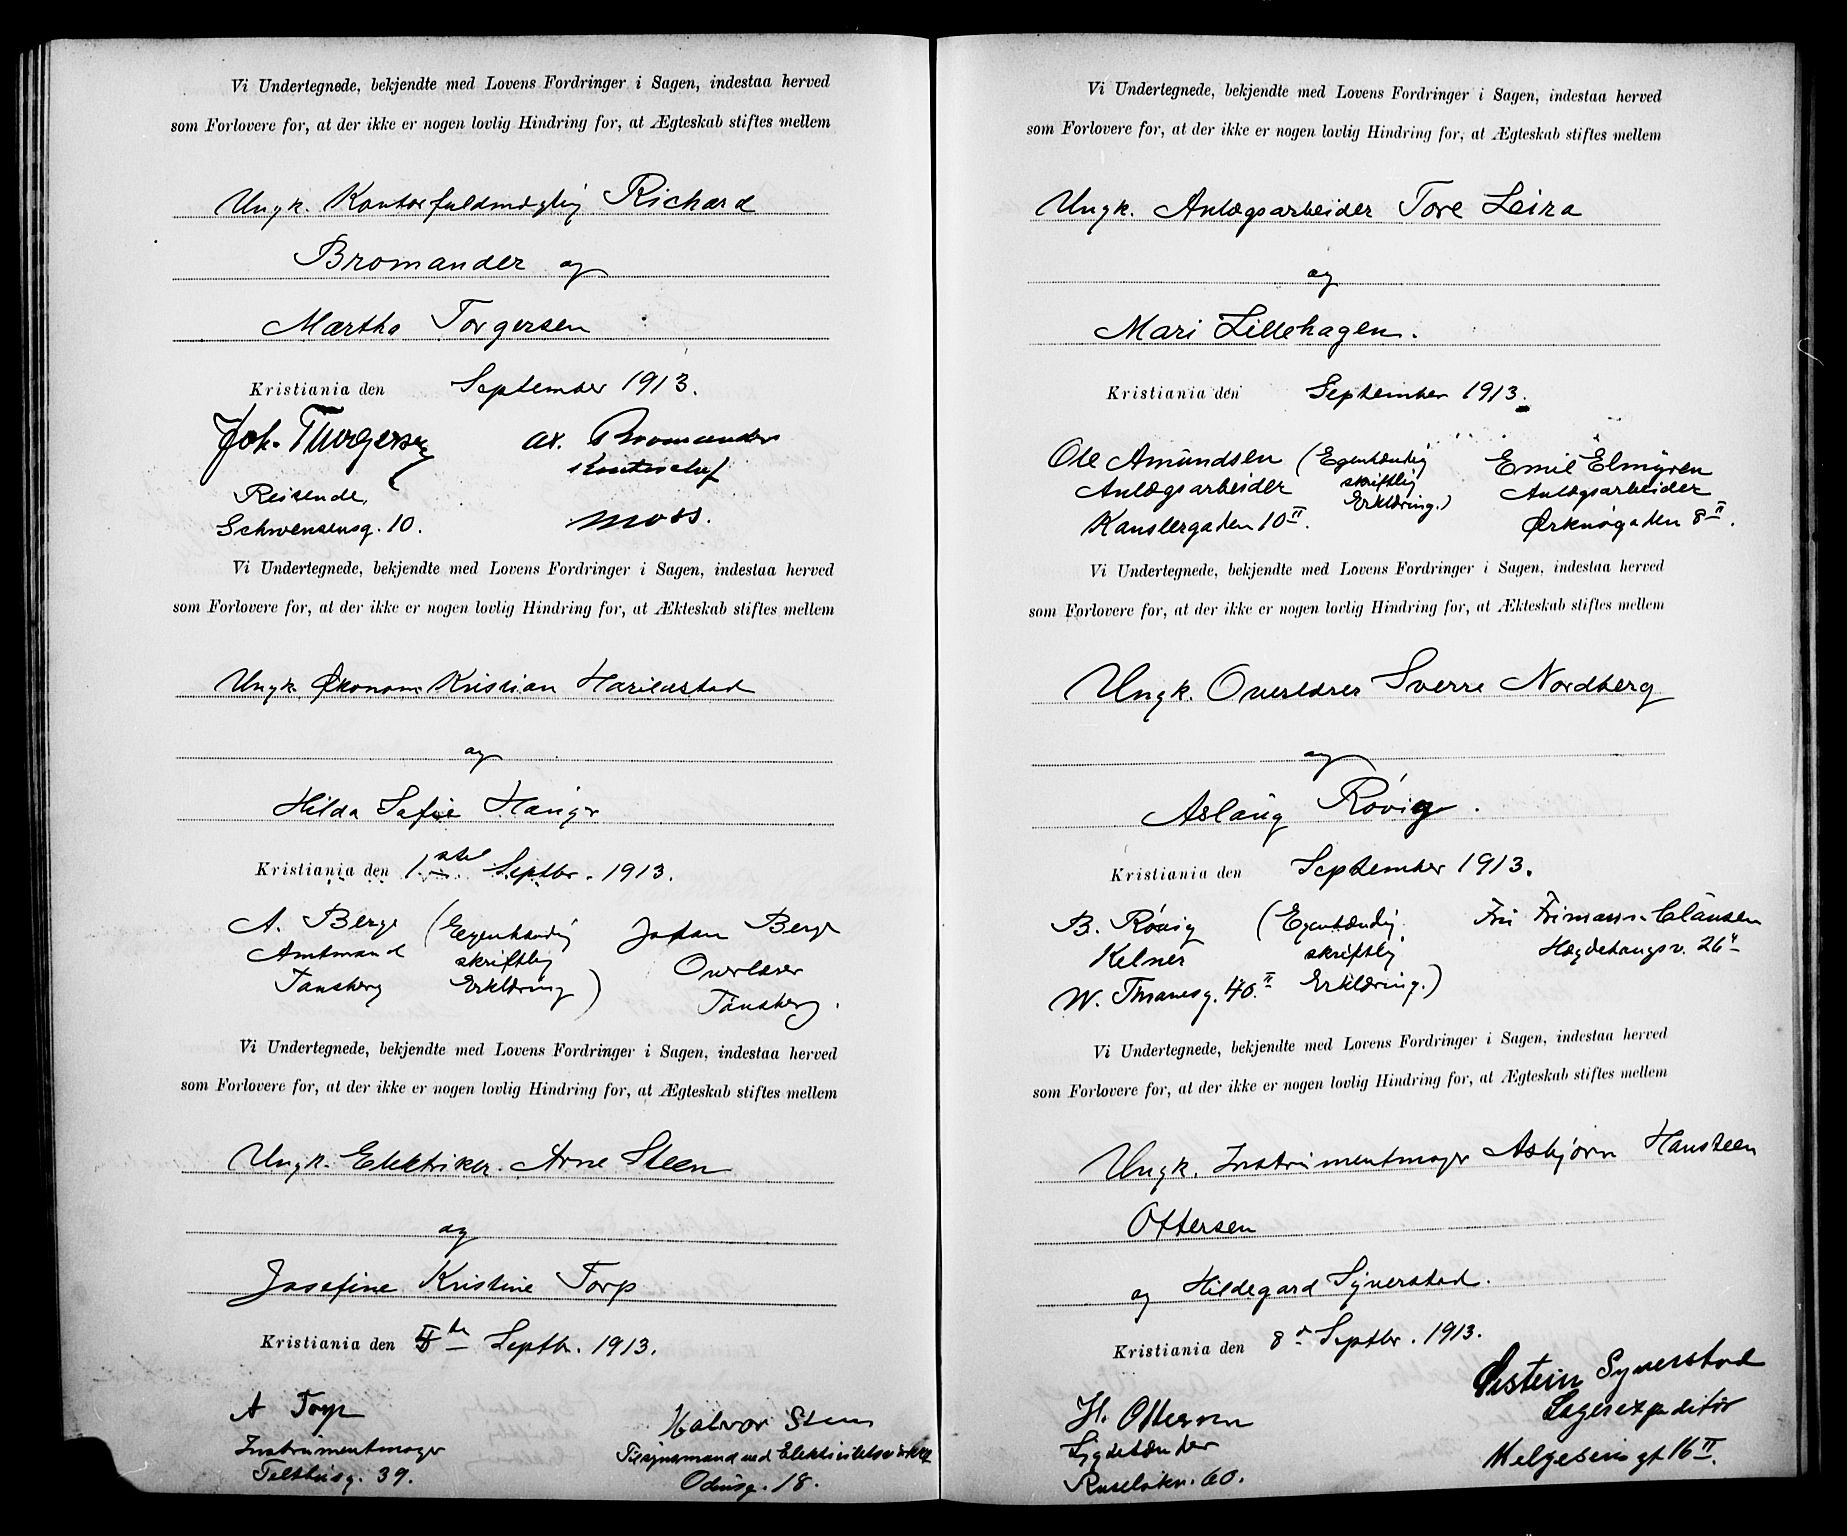 Vi Undertegnede, bekjendte med Lovens Fordringer i Sagen, indestaa herved
som Forlovere for, at der ikke er nogen lovlig Hindring for, at Ægteskab stiftes mellem
Ungk. Kontorfuldmægtig Richard
Bromander og
Martha Torgersen
Kristiania den September 1913.
Joh. Thorgersen
Reisende,
Schwensensg. 10.
Ax. Bromander
Kontorchef
Moss.
Vi Undertegnede, bekjendte med Lovens Fordringer i Sagen, indestaa herved
som Forlovere for, at der ikke er nogen lovlig Hindring for, at Ækteskab stiftes mellem
Ungk. Økonom Kristian Harildstad
og
Hilda Sofie Haug
Kristiania den 1ste Septbr. 1913.
A. Berge
Amtmand
Tønsberg
(Egenhændig
skriftlig
Erklæring)
Johan Berge
Overlærer
Tønsberg.
Vi Undertegnede, bekjendte med Lovens Fordringer i Sagen, indestaa herved
som Forlovere for, at der ikke er nogen lovlig Hindring for, at Ægteskab stiftes mellem
Ungk. Elektriker Arne Steen
og
Josefine Kristine Torp
Kristiania den 5te Septbr. 1913.
A Torp
Instrumentmager
Telthusg. 39.
Halvor Steen
Tilsynsmand ved Elektricitetsverket
Odinsg. 18.
Vi Undertegnede, bekjendte med Lovens Fordringer i Sagen, indestaa herved
som Forlovere for, at der ikke er nogen lovlig Hindring for, at Ægteskab stiftes mellem
Ungk. Anlægsarbeider Tore Leira
og
Mari Lillehagen.
Kristiania den September 1913.
Ole Amundsen
Anlægsarbeider
Kanslergaden 10 II.
(Egenhændig
skriftlig
Erklæring.)
Emil Elmgren
Anlægsarbeider
Ørknøgaden 8 II.
Vi Undertegnede, bekjendte med Lovens Fordringer i Sagen, indestaa herved
som Forlovere for, at der ikke er nogen lovlig Hindring for, at Ækteskab stiftes mellem
Ungk. Overlærer Sverre Nordberg
og
Aslaug Røvig.
Kristiania den September 1913.
B. Røvig
Kelner
W. Thranesg. 40 II
(Egenhændig
skriftlig
Erklæring.)
Fru Frimann-Clausen
Hægdehaugsv. 26
Vi Undertegnede, bekjendte med Lovens Fordringer i Sagen, indestaa herved
som Forlovere for, at der ikke er nogen lovlig Hindring for, at Ægteskab stiftes mellem
Ungk. Instrumentmager Asbjørn Hansteen
Ottersen
og Hildegard Synerstad.
Kristiania den 8de Septbr. 1913.
H. Ottersen
Lygtetænder
Ruseløkv. 60.
Øistein Synerstad
Lagerexpeditør
Helgesens gt 16 II.